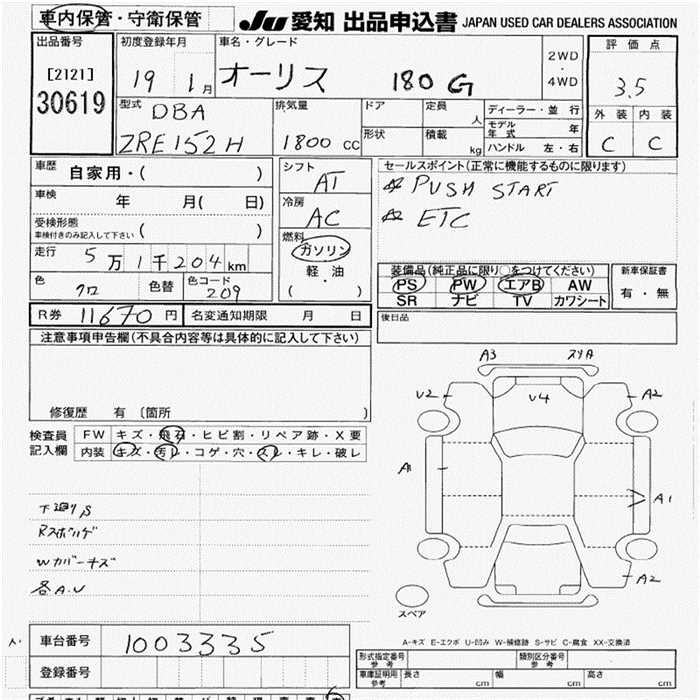 車内保管・守衛保管
JU 愛知 出品申込書 JAPAN USED CAR DEALERS ASSOCIATION
出品番号
[2121]
30619
初度登録年月
19 1月
車名・グレード
オーリス 180 G
2WD
・
4WD
評価点
3.5
外装 内装
C C
型式
DBA
ZRE152H
排気量
1800 cc
ドア
形状
定員 人
積載 kg
ディーラー・並行
モデル年式 年
ハンドル 左・右
車歴 自家用・( )
車検 年 月( 日)
受検形態
車検付きのみ記入して下さい ( )
走行 5万1千204km
色 クロ 色替 色コード 209
シフト
AT
冷房
AC
燃料
ガソリン
軽・油
( )
セールスポイント(正常に機能するものに限ります)
☆ PUSH START
☆ ETC
装備品(純正品に限り○をつけてください)
PS PW エアB AW
SR ナビ TV カワシート
新車保証書
有・無
R券 11670 円 名変通知期限 月 日
後日品
注意事項申告欄(不具合内容等は具体的に記入して下さい)
修復歴 有 〔箇所 〕
検査員
記入欄
FW キズ・飛石・ヒビ割・リペア跡・X要
内装 キズ・汚レ・コゲ・穴・スレ・キレ・破レ
下廻りS
Wカバーキズ
各A.U
A3
U2
U4
A2
A1
A1
A2
スペア
A-キズ E-エクボ U-凹み W-補修跡 S-サビ C-腐食 XX-交換済
車台番号 1003335
登録番号
形式指定番号
参考
類別区分番号
参考
車庫証明用
参考
長さ cm 幅 cm 高さ cm